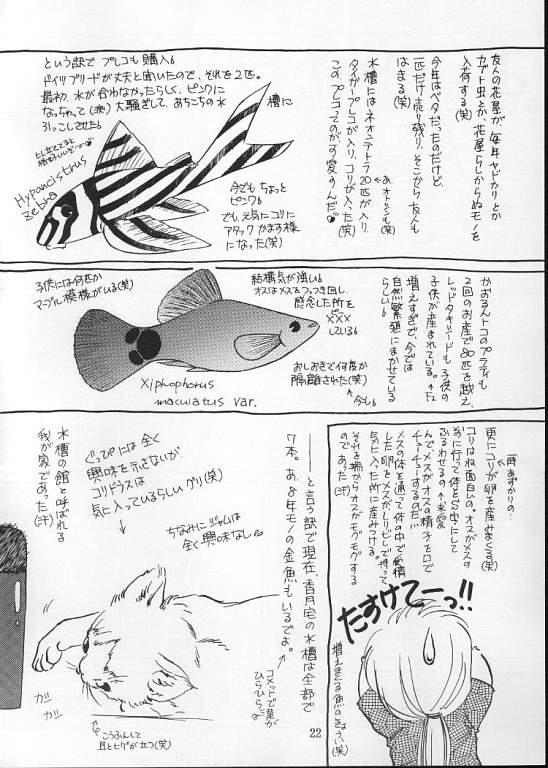 友人の花屋が、毎年ヤドカリとか
カブト虫とか、花屋らしからぬモノを
入荷する(笑)
今年はベタだったのだけど、
一匹だけ売り残り、そこから友人も
はまる(笑)
水槽にはネオンテトラ20匹が入り、
あ、オトシンも(笑)
タイガープレコが入り、コリが入った(笑)
この、プレコってのがす愛すんだ
という訳で プレコも購入。
ドイツブリードが丈夫と聞いたので、それを2匹。
最初、水が合わなかったらしく、ピンクに
なっちゃって(涙)大騒ぎして、あちこちの水
槽に
引っこしさせた。
Hypancistrus
Zebra
今でも ちょっと
ピンク。
でも、元気にコリに
アタック かます様
になった(笑)
かおるんトコのプラティも
2回のお産で80匹を越え、
レッドタキシードも子供の
子供が産まれている。
↑F2
増えすぎて、今では
自然繁殖にまかせている
らしい。
結構気が強い。
オスはメスをつつき回し、
懸念した所を
×××
している。
おしおきで何度か
隔離された(笑)
↑今も。
子供には何匹か
マーブル模様がいる(笑)
Xiphophorus
maculatus var.
一時あずかりの?
更にコリが卵を産みまくる(笑)
コリはね面白いの。オスがメスの
前に行って体をS字にして
ふるわせるの ←求愛
んで、メスがオスの精子を口で
チューチューするのだ!!
メスの体を通って体の中で受精
した卵をメスがヒレで持って
気に入った所に産みつける。
それを端からオスがモグモグする
のであった(汗)
たすけてーっ!!
増えまくる魚のきょうい(笑)
――と言う訳で現在、香月宅の水槽は全部で
7本。あ、8年モノの金魚もいるでよ。
コメットで尾が
ひらひらなの
ぐっぴにには全く
興味を示さないが、
コリドラスは
気に入っているらしい グリ(笑)
ちなみに ジャムは
全く興味なし
水槽の館と呼ばれる
我が家であった(汗)
ガガ
ガガ
こうふんして
耳とヒゲが立つ(笑)
22